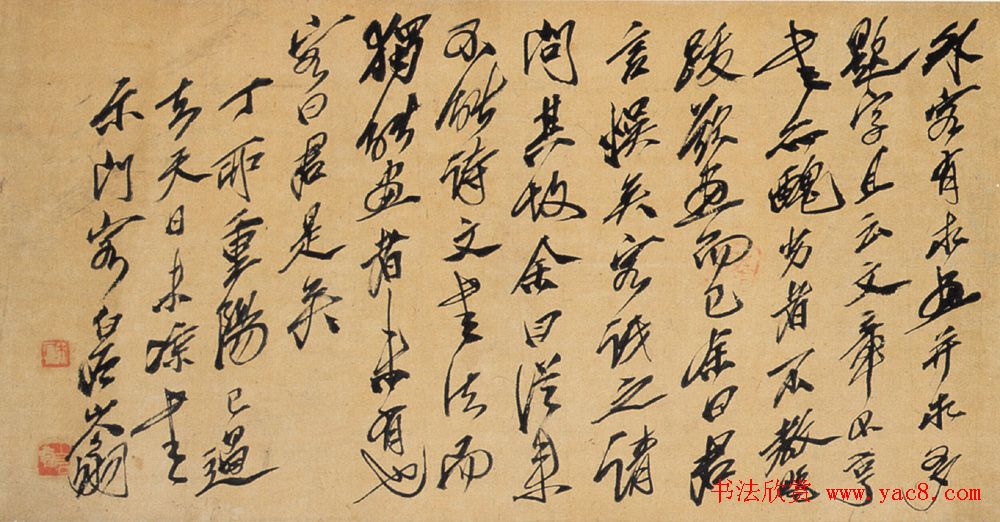 外客有求畫并求多
題字且云文章不
書亦醜劣者不敢
跋欲畫而已余曰君
言悞矣客诚之請
問其故余曰從來
不能詩文書法而
獨能畫者未有也
客曰君是矣
丁卯重陽已過
去天日未凉書
京門客白石山翁
书法欣赏 www.yac8.com